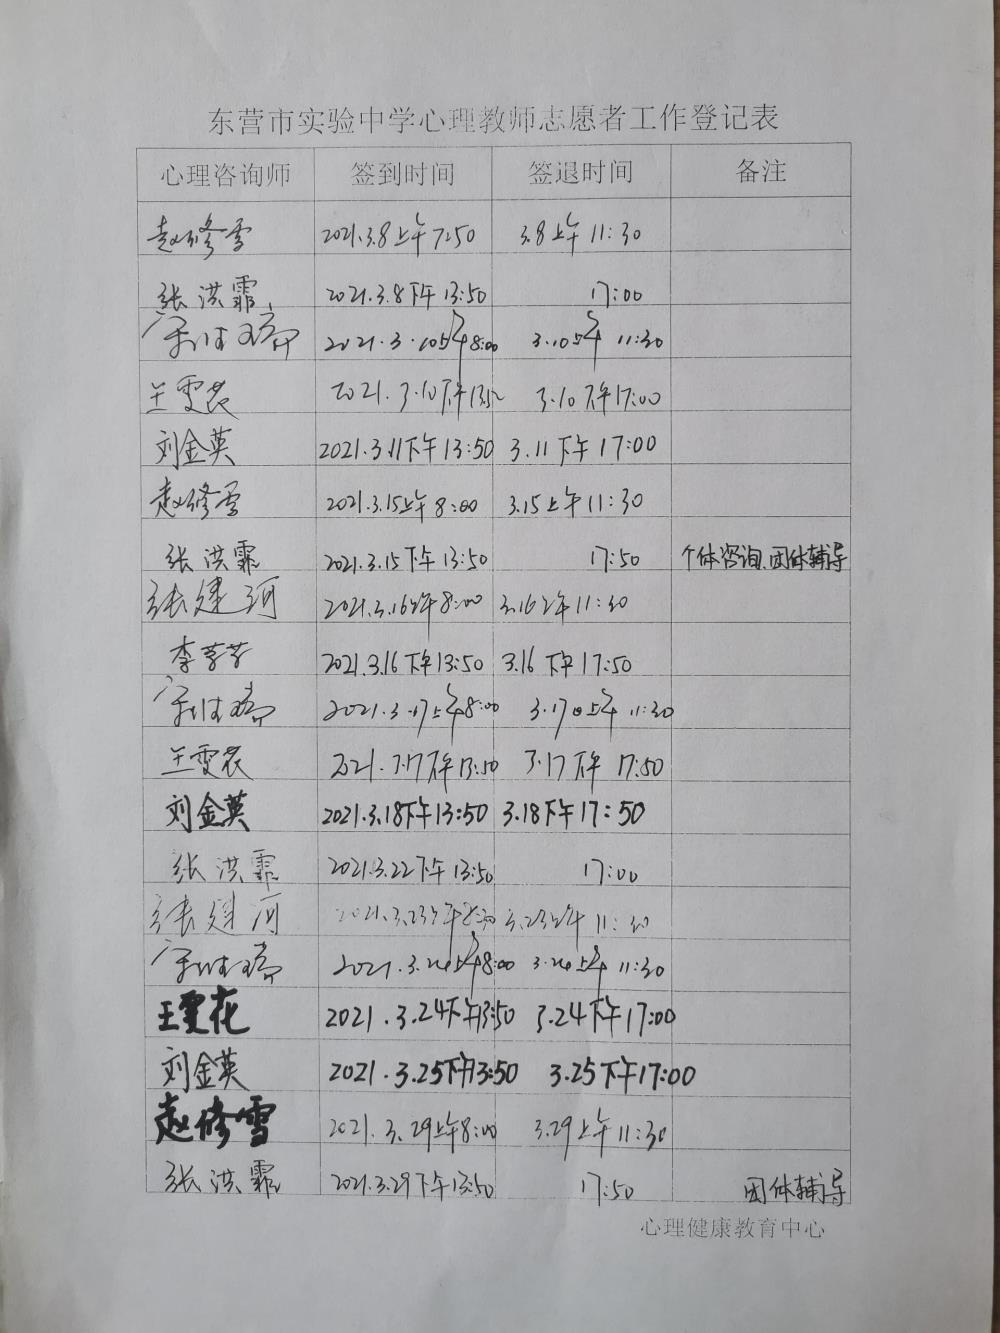 东营市实验中学心理教师志愿者工作登记表
心理咨询师 签到时间 签退时间 备注
赵修雪 2021.3.8上午7:50 3.8上午11:30
张洪霏 2021.3.8下午13:50 17:00
2021.3.10上午8:00 3.10上午11:30
王雯花 2021.3.10下午13:50 3.10下午17:00
刘金英 2021.3.11下午13:50 3.11下午17:00
赵修雪 2021.3.15上午8:00 3.15上午11:30
张洪霏 2021.3.15下午13:50 17:50 个体咨询、团体辅导
张建河 2021.3.16上午8:00 3.16上午11:30
李芳芳 2021.3.16下午13:50 3.16下午17:50
2021.3.17上午8:00 3.17日上午11:30
王雯花 2021.3.17下午13:50 3.17下午17:50
刘金英 2021.3.18下午13:50 3.18下午17:50
张洪霏 2021.3.22下午13:50 17:00
张建河 2021.3.23上午8:30 3.23上午11:30
2021.3.24上午8:00 3.24上午11:30
王雯花 2021.3.24下午13:50 3.24下午17:00
刘金英 2021.3.25下午13:50 3.25下午17:00
赵修雪 2021.3.29上午8:00 3.29上午11:30
张洪霏 2021.3.29下午13:50 17:50 团体辅导
心理健康教育中心